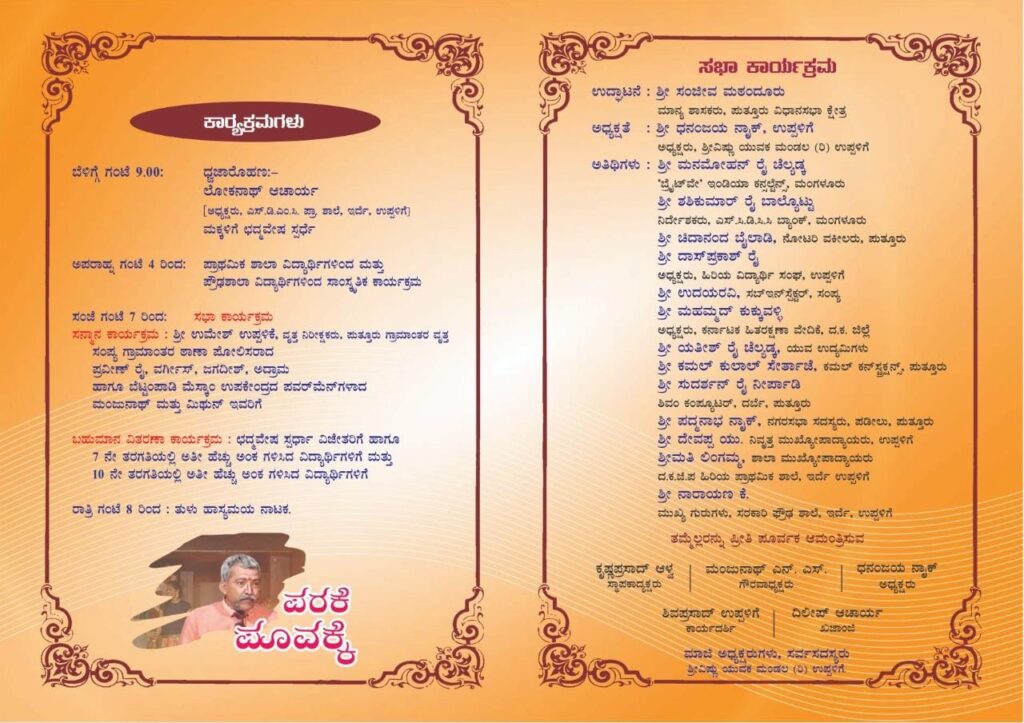 ಕಾರ್‍ಯಕ್ರಮಗಳು
ಬೆಳಿಗ್ಗೆ ಗಂಟೆ 9.00: ಧ್ವಜಾರೋಹಣ:–
ಲೋಕನಾಥ್ ಆಚಾರ್ಯ
[ಅಧ್ಯಕ್ಷರು, ಎಸ್.ಡಿ.ಎಂ.ಸಿ. ಪ್ರಾ. ಶಾಲೆ, ಇರ್ದೆ, ಉಪ್ಪಳಿಗೆ]
ಮಕ್ಕಳಿಗೆ ಛದ್ಮವೇಷ ಸ್ಪರ್ಧೆ
ಅಪರಾಹ್ನ ಗಂಟೆ 4 ರಿಂದ: ಪ್ರಾಥಮಿಕ ಶಾಲಾ ವಿದ್ಯಾರ್ಥಿಗಳಿಂದ ಮತ್ತು
ಪ್ರೌಢಶಾಲಾ ವಿದ್ಯಾರ್ಥಿಗಳಿಂದ ಸಾಂಸ್ಕೃತಿಕ ಕಾರ್ಯಕ್ರಮ
ಸಂಜೆ ಗಂಟೆ 7 ರಿಂದ: ಸಭಾ ಕಾರ್ಯಕ್ರಮ
ಸನ್ಮಾನ ಕಾರ್ಯಕ್ರಮ : ಶ್ರೀ ಉಮೇಶ್ ಉಪ್ಪಳಿಕೆ, ವೃತ್ತ ನಿರೀಕ್ಷಕರು, ಪುತ್ತೂರು ಗ್ರಾಮಾಂತರ ವೃತ್ತ
ಸಂಪ್ಯ ಗ್ರಾಮಾಂತರ ಠಾಣಾ ಪೋಲಿಸರಾದ
ಪ್ರವೀಣ್ ರೈ, ವರ್ಗೀಸ್, ಜಗದೀಶ್, ಅದ್ರಾಮ
ಹಾಗೂ ಬೆಟ್ಟಂಪಾಡಿ ಮೆಸ್ಕಾಂ ಉಪಕೇಂದ್ರದ ಪವರ್‌ಮೆನ್‌ಗಳಾದ
ಮಂಜುನಾಥ್ ಮತ್ತು ಮಿಥುನ್ ಇವರಿಗೆ
ಬಹುಮಾನ ವಿತರಣಾ ಕಾರ್ಯಕ್ರಮ : ಛದ್ಮವೇಷ ಸ್ಪರ್ಧಾ ವಿಜೇತರಿಗೆ ಹಾಗೂ
7 ನೇ ತರಗತಿಯಲ್ಲಿ ಅತೀ ಹೆಚ್ಚು ಅಂಕ ಗಳಿಸಿದ ವಿದ್ಯಾರ್ಥಿಗಳಿಗೆ ಮತ್ತು
10 ನೇ ತರಗತಿಯಲ್ಲಿ ಅತೀ ಹೆಚ್ಚು ಅಂಕ ಗಳಿಸಿದ ವಿದ್ಯಾರ್ಥಿಗಳಿಗೆ
ರಾತ್ರಿ ಗಂಟೆ 8 ರಿಂದ : ತುಳು ಹಾಸ್ಯಮಯ ನಾಟಕ.
ಪರಕೆ
ಪೂವಕ್ಕೆ
ಸಭಾ ಕಾರ್ಯಕ್ರಮ
ಉದ್ಘಾಟನೆ : ಶ್ರೀ ಸಂಜೀವ ಮಠಂದೂರು
ಮಾನ್ಯ ಶಾಸಕರು, ಪುತ್ತೂರು ವಿಧಾನಸಭಾ ಕ್ಷೇತ್ರ
ಅಧ್ಯಕ್ಷತೆ : ಶ್ರೀ ಧನಂಜಯ ನ್ಯಾಕ್, ಉಪ್ಪಳಿಗೆ
ಅಧ್ಯಕ್ಷರು, ಶ್ರೀವಿಷ್ಣು ಯುವಕ ಮಂಡಲ (ರಿ) ಉಪ್ಪಳಿಗೆ
ಅತಿಥಿಗಳು : ಶ್ರೀ ಮನಮೋಹನ್ ರೈ ಚೆಲ್ಯಡ್ಕ
'ಬ್ರೈಟ್‌ವೇ' ಇಂಡಿಯಾ ಕನ್ಸಲ್ಟೆನ್ಸ್, ಮಂಗಳೂರು
ಶ್ರೀ ಶಶಿಕುಮಾರ್ ರೈ ಬಾಲ್ಯೊಟ್ಟು
ನಿರ್ದೇಶಕರು, ಎಸ್.ಸಿ.ಡಿ.ಸಿ.ಸಿ ಬ್ಯಾಂಕ್, ಮಂಗಳೂರು
ಶ್ರೀ ಚಿದಾನಂದ ಬೈಲಾಡಿ, ನೋಟರಿ ವಕೀಲರು, ಪುತ್ತೂರು
ಶ್ರೀ ದಾಸ್‌ಪ್ರಕಾಶ್ ರೈ
ಅಧ್ಯಕ್ಷರು, ಹಿರಿಯ ವಿದ್ಯಾರ್ಥಿ ಸಂಘ, ಉಪ್ಪಳಿಗೆ
ಶ್ರೀ ಉದಯರವಿ, ಸಬ್‌ಇನ್‌ಸ್ಪೆಕ್ಟರ್, ಸಂಪ್ಯ
ಶ್ರೀ ಮಹಮ್ಮದ್ ಕುಕ್ಕುವಳ್ಳಿ
ಅಧ್ಯಕ್ಷರು, ಕರ್ನಾಟಕ ಹಿತರಕ್ಷಣಾ ವೇದಿಕೆ, ದ.ಕ. ಜಿಲ್ಲೆ
ಶ್ರೀ ಯತೀಶ್ ರೈ ಚೆಲ್ಯಡ್ಕ, ಯುವ ಉದ್ಯಮಿಗಳು
ಶ್ರೀ ಕಮಲ್ ಕುಲಾಲ್ ಸೇರ್ತಾಜೆ, ಕಮಲ್ ಕನ್‌ಸ್ಟ್ರಕ್ಷನ್ಸ್, ಪುತ್ತೂರು
ಶ್ರೀ ಸುದರ್ಶನ್ ರೈ ನೀರ್ಪಾಡಿ
ಶಿವಂ ಕಂಪ್ಯೂಟರ್, ದರ್ಬೆ, ಪುತ್ತೂರು
ಶ್ರೀ ಪದ್ಮನಾಭ ನ್ಯಾಕ್, ನಗರಸಭಾ ಸದಸ್ಯರು, ಪಡೀಲು, ಪುತ್ತೂರು
ಶ್ರೀ ದೇವಪ್ಪ ಯು. ನಿವೃತ್ತ ಮುಖ್ಯೋಪಾದ್ಯಾಯರು, ಉಪ್ಪಳಿಗೆ
ಶ್ರೀಮತಿ ಲಿಂಗಮ್ಮ, ಶಾಲಾ ಮುಖ್ಯೋಪಾದ್ಯಾಯರು
ದ.ಕ.ಜಿ.ಪ ಹಿರಿಯ ಪ್ರಾಥಮಿಕ ಶಾಲೆ, ಇರ್ದೆ ಉಪ್ಪಳಿಗೆ
ಶ್ರೀ ನಾರಾಯಣ ಕೆ.
ಮುಖ್ಯ ಗುರುಗಳು, ಸರಕಾರಿ ಫ್ರೌಢ ಶಾಲೆ, ಇರ್ದೆ, ಉಪ್ಪಳಿಗೆ
ತಮ್ಮೆಲ್ಲರನ್ನು ಪ್ರೀತಿ ಪೂರ್ವಕ ಆಮಂತ್ರಿಸುವ
ಕೃಷ್ಣಪ್ರಸಾದ್ ಆಳ್ವ ಮಂಜುನಾಥ್ ಎನ್. ಎಸ್. ಧನಂಜಯ ನ್ಯಾಕ್
ಸ್ಥಾಪಕಾದ್ಯಕ್ಷರು ಗೌರವಾಧ್ಯಕ್ಷರು ಅಧ್ಯಕ್ಷರು
ಶಿವಪ್ರಸಾದ್ ಉಪ್ಪಳಿಗೆ ದಿಲೀಪ್ ಆಚಾರ್ಯ
ಕಾರ್ಯದರ್ಶಿ ಖಜಾಂಜಿ
ಮಾಜಿ ಅಧ್ಯಕ್ಷರುಗಳು, ಸರ್ವಸದಸ್ಯರು
ಶ್ರೀವಿಷ್ಣು ಯುವಕ ಮಂಡಲ (ರಿ) ಉಪ್ಪಳಿಗೆ